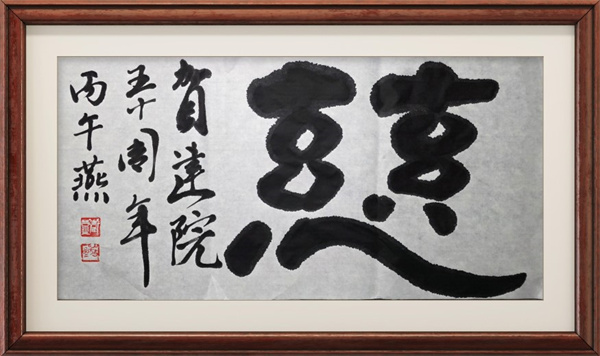 慈
賀建院
五十周年
丙午燕